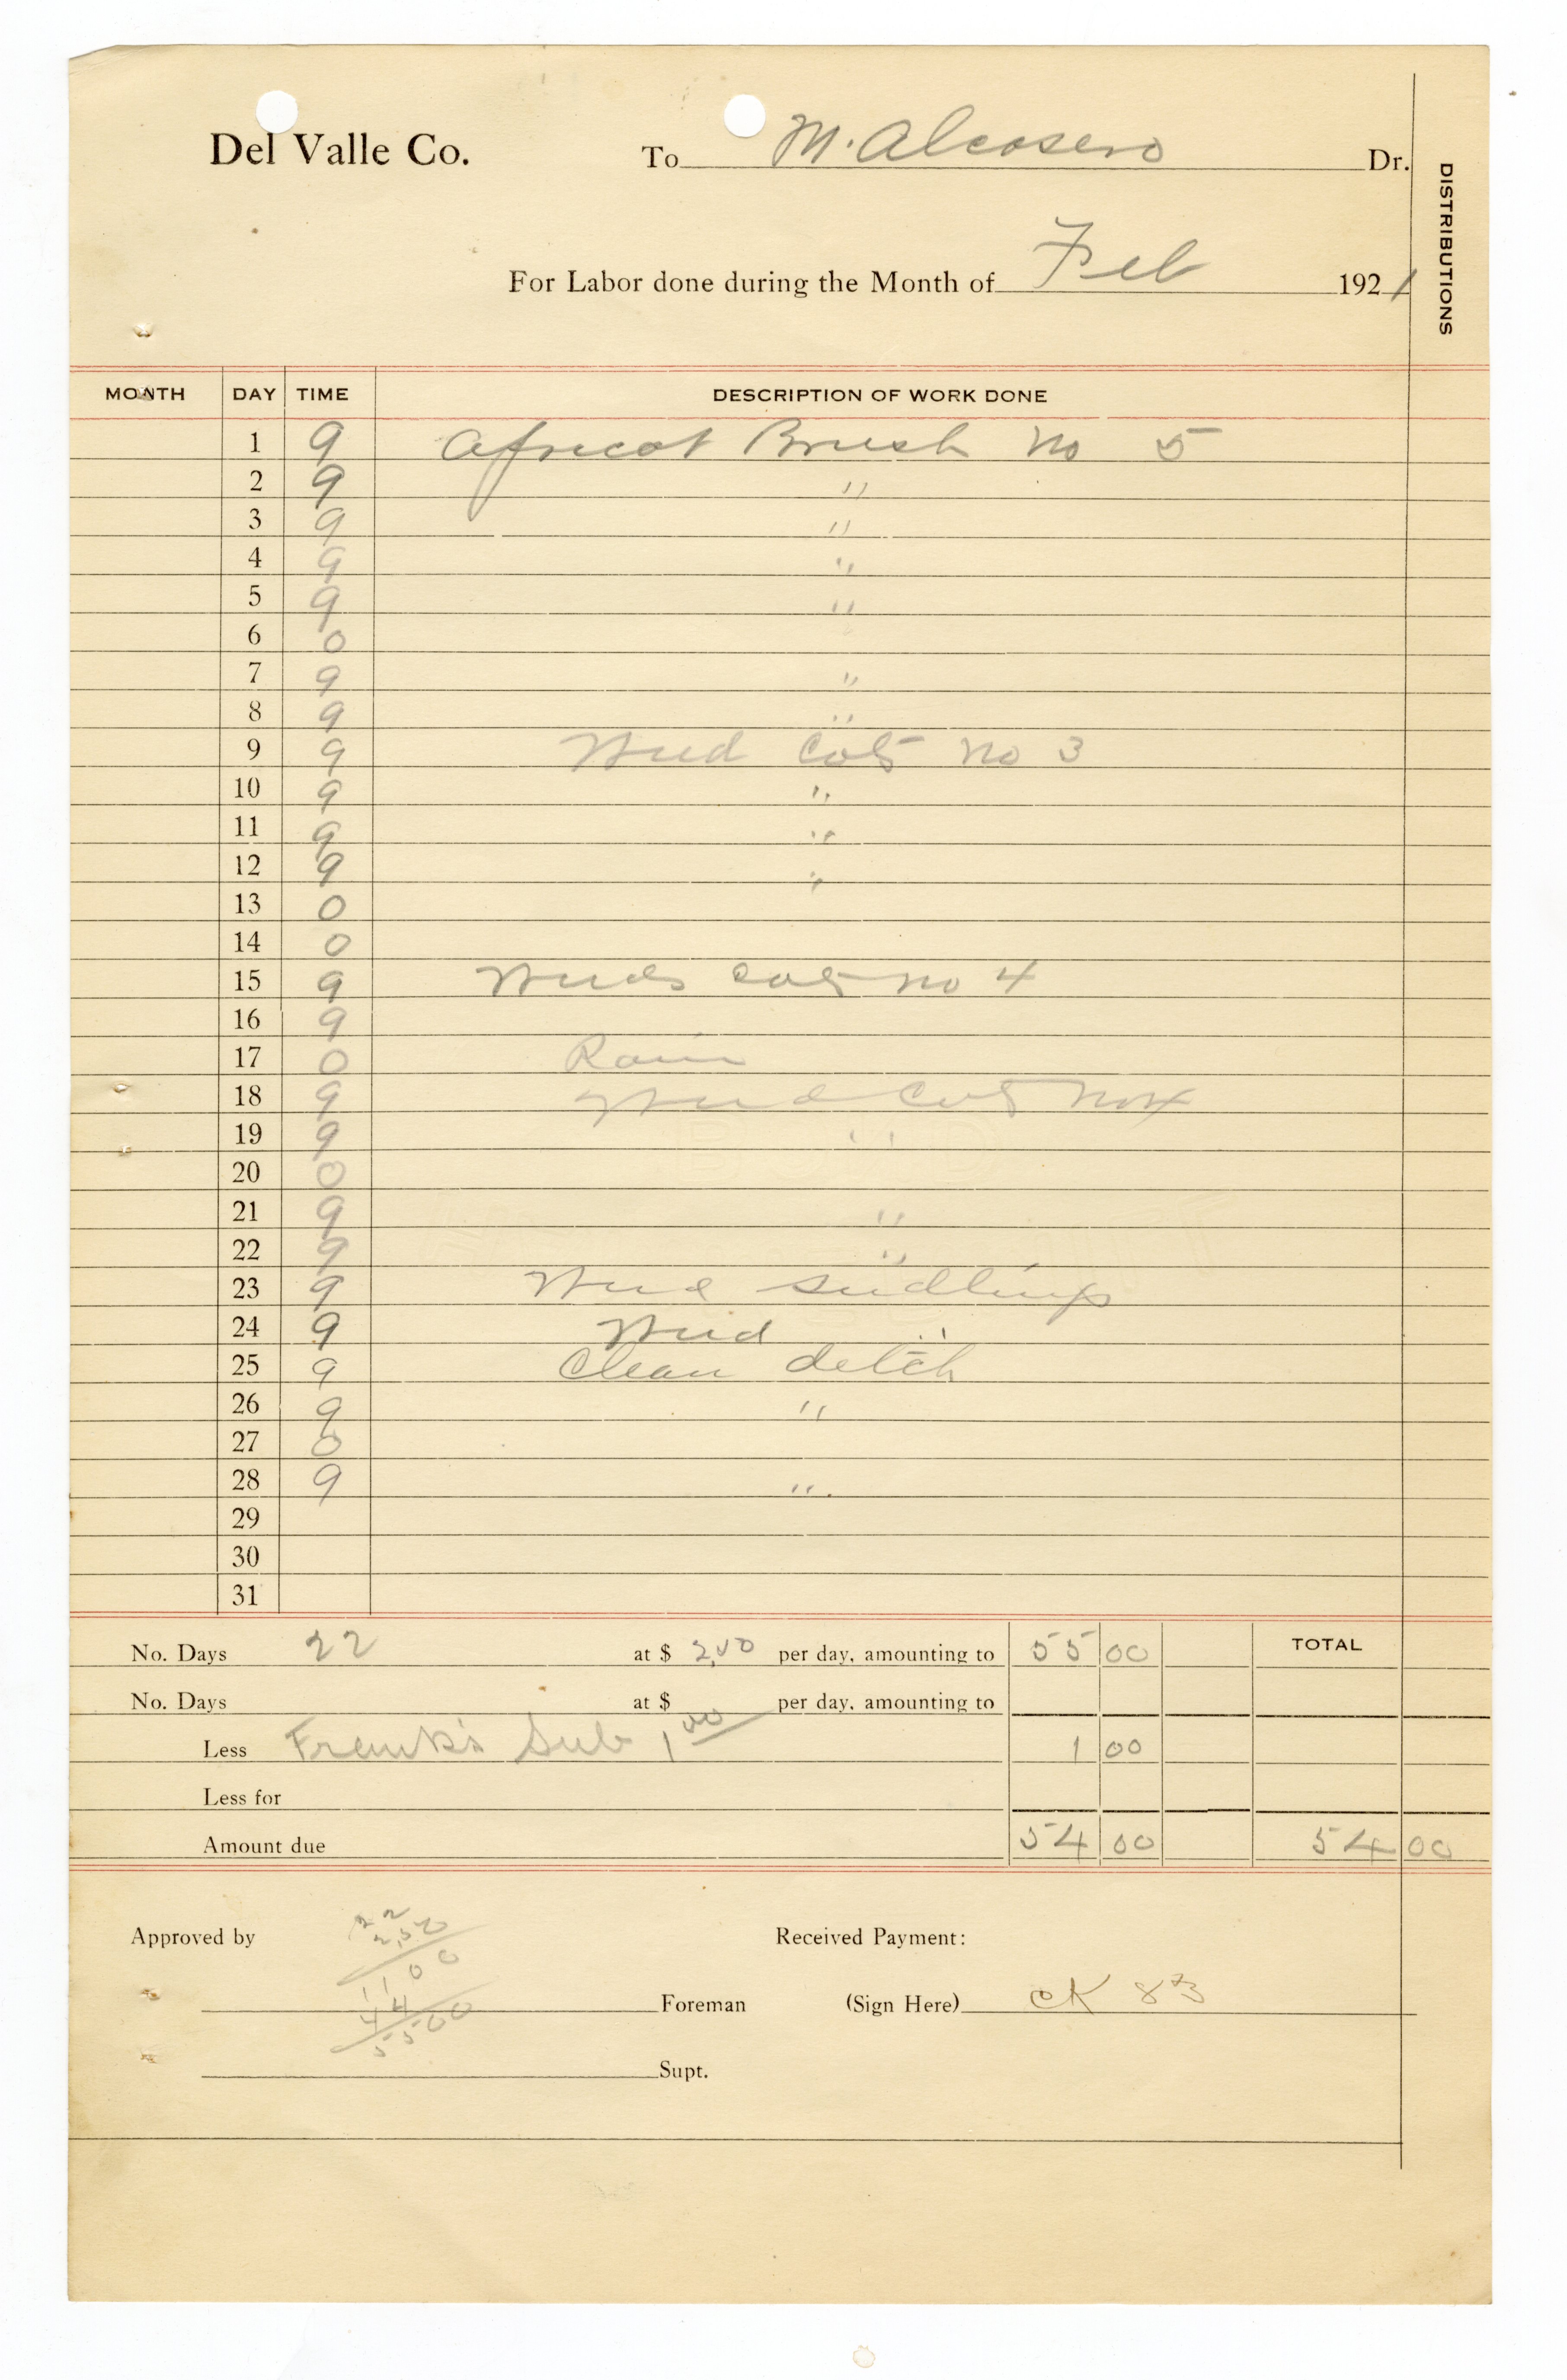 Del Valle Co. To M. Alcosero Dr.
DISTRIBUTIONS
For Labor done during the Month of Feb 1921
MONTH DAY TIME DESCRIPTION OF WORK DONE
1 9 Apricot Brush No 5
2 9 "
3 9 "
4 9 "
5 9 "
6 0
7 9 "
8 9 "
9 9 Weed Cots No 3
10 9 "
11 9 "
12 9 "
13 0
14 0
15 9 Weeds Cots no 4
16 9
17 0 Rain
18 9 Weed Cots No 4
19 9 "
20 0
21 9 "
22 9 "
23 9 Weed Seedlings
24 9 Weed "
25 9 Clean detch
26 9 "
27 0
28 9 "
29
30
31
No. Days 22 at $ 2.50 per day, amounting to 55 00 TOTAL
No. Days at $ per day, amounting to
Less Frank's Sub 1 00 1 00
Less for
Amount due 54 00 54 00
Approved by Received Payment:
22
2.50
1100
44
5500
Foreman (Sign Here) CK 83
Supt.